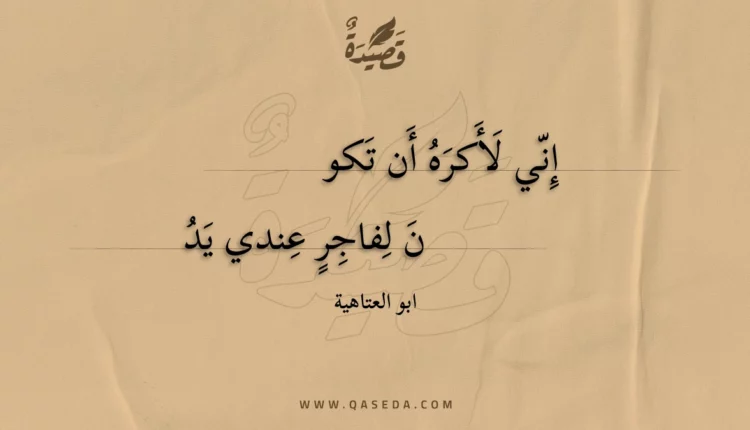 قَصِيدَةٌ
إِنّي لَأَكرَهُ أَن تَكو
نَ لِفاجِرٍ عِندي يَدُ
ابو العتاهية
WWW.QASEDA.COM